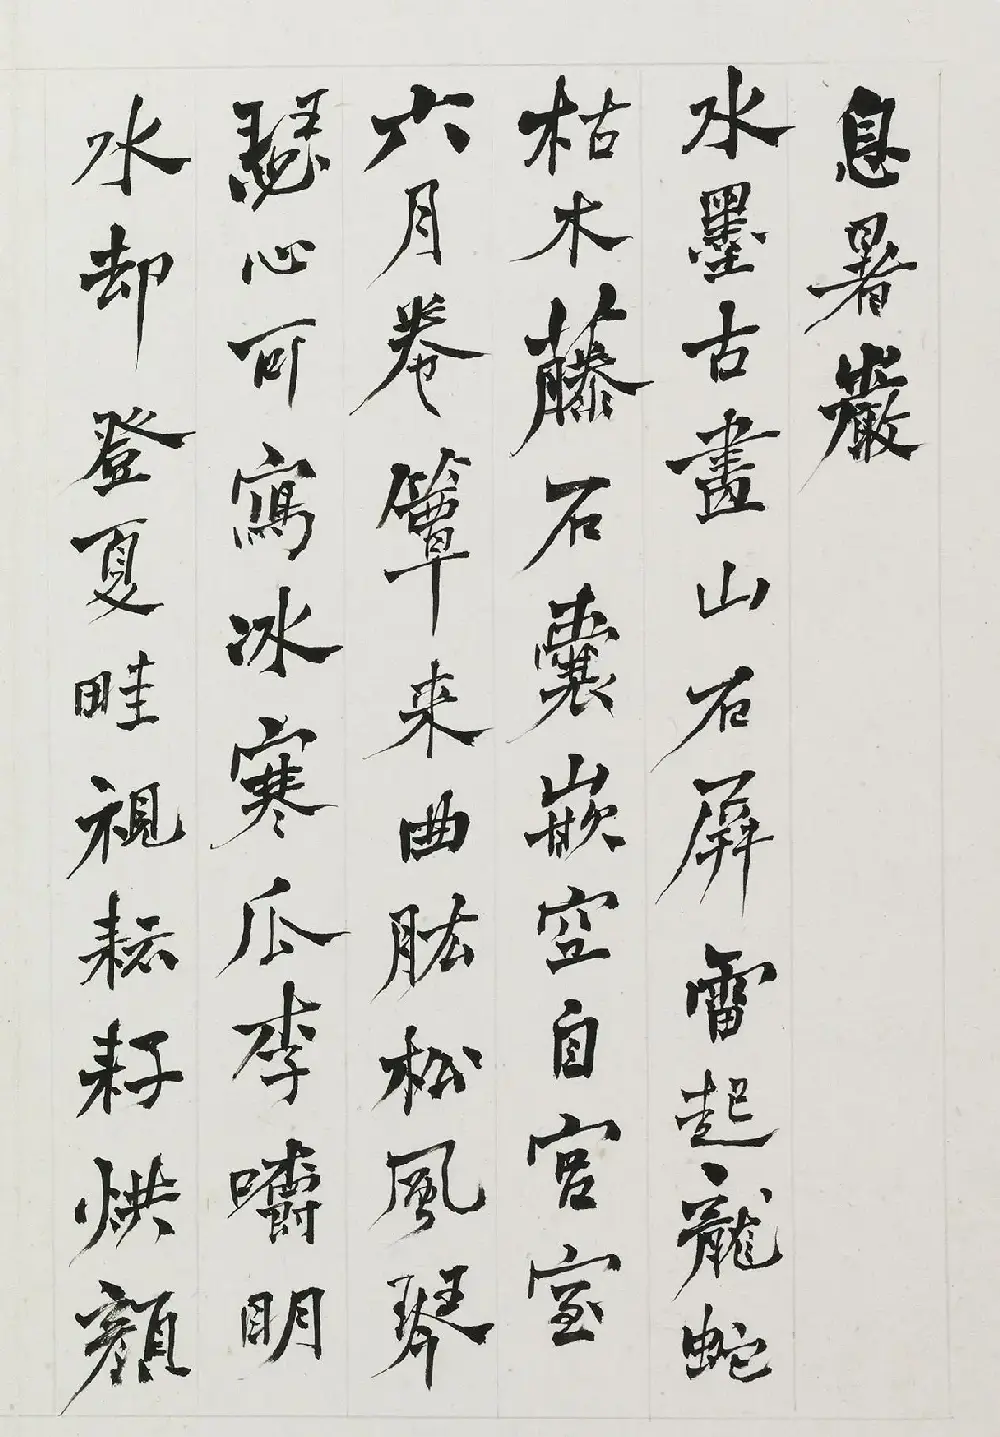 息暑巖
水墨古畫山石屏雷起龍蛇
枯木藤石囊嵌空自宮室
六月卷簟来曲肱松風琴
瑟心可寫冰寒瓜李嚼明
水却登夏畦視耘耔烘顏